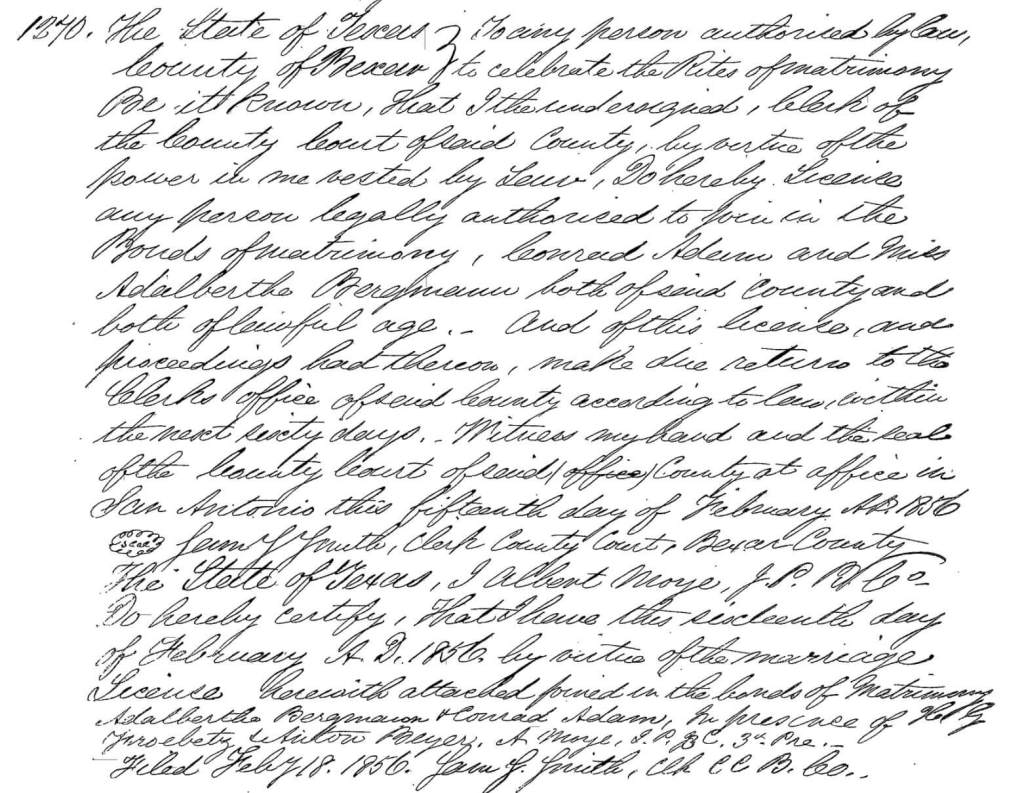 1270. The State of Texas } To any person authorised by law,
County of Bexar } to celebrate the Rites of matrimony
Be it known, That I the undersigned, Clerk of
the County Court of said County, by virtue of the
power in me vested by Law, Do hereby License
any person legally authorised to join in the
Bonds of matrimony, Conrad Adam and Miss
Adalbertha Bergmann both of said County and
both of lawful age. – And of this licence, and
proceedings had thereon, make due return to the
Clerks office of said County according to law, within
the next sixty days. – Witness my hand and the seal
of the County Court of said (office) County at office in
San Antonio this fifteenth day of February A.D. 1856
seal Sam S. Smith, Clerk County Court, Bexar County
The State of Texas, I Albert Moye, J. P. B. Co.
Do hereby certify, That I have this sixteenth day
of February A. D. 1856. by virtue of the marriage
License herewith attached joined in the bonds of Matrimony
Adalbertha Bergmann & Conrad Adam, In presence of
& Anton Beyer. A. Moye, J. P. B. C. 3d. Pre. –
Filed Feby 18. 1856. Sam S. Smith, Clk C C B. Co. –